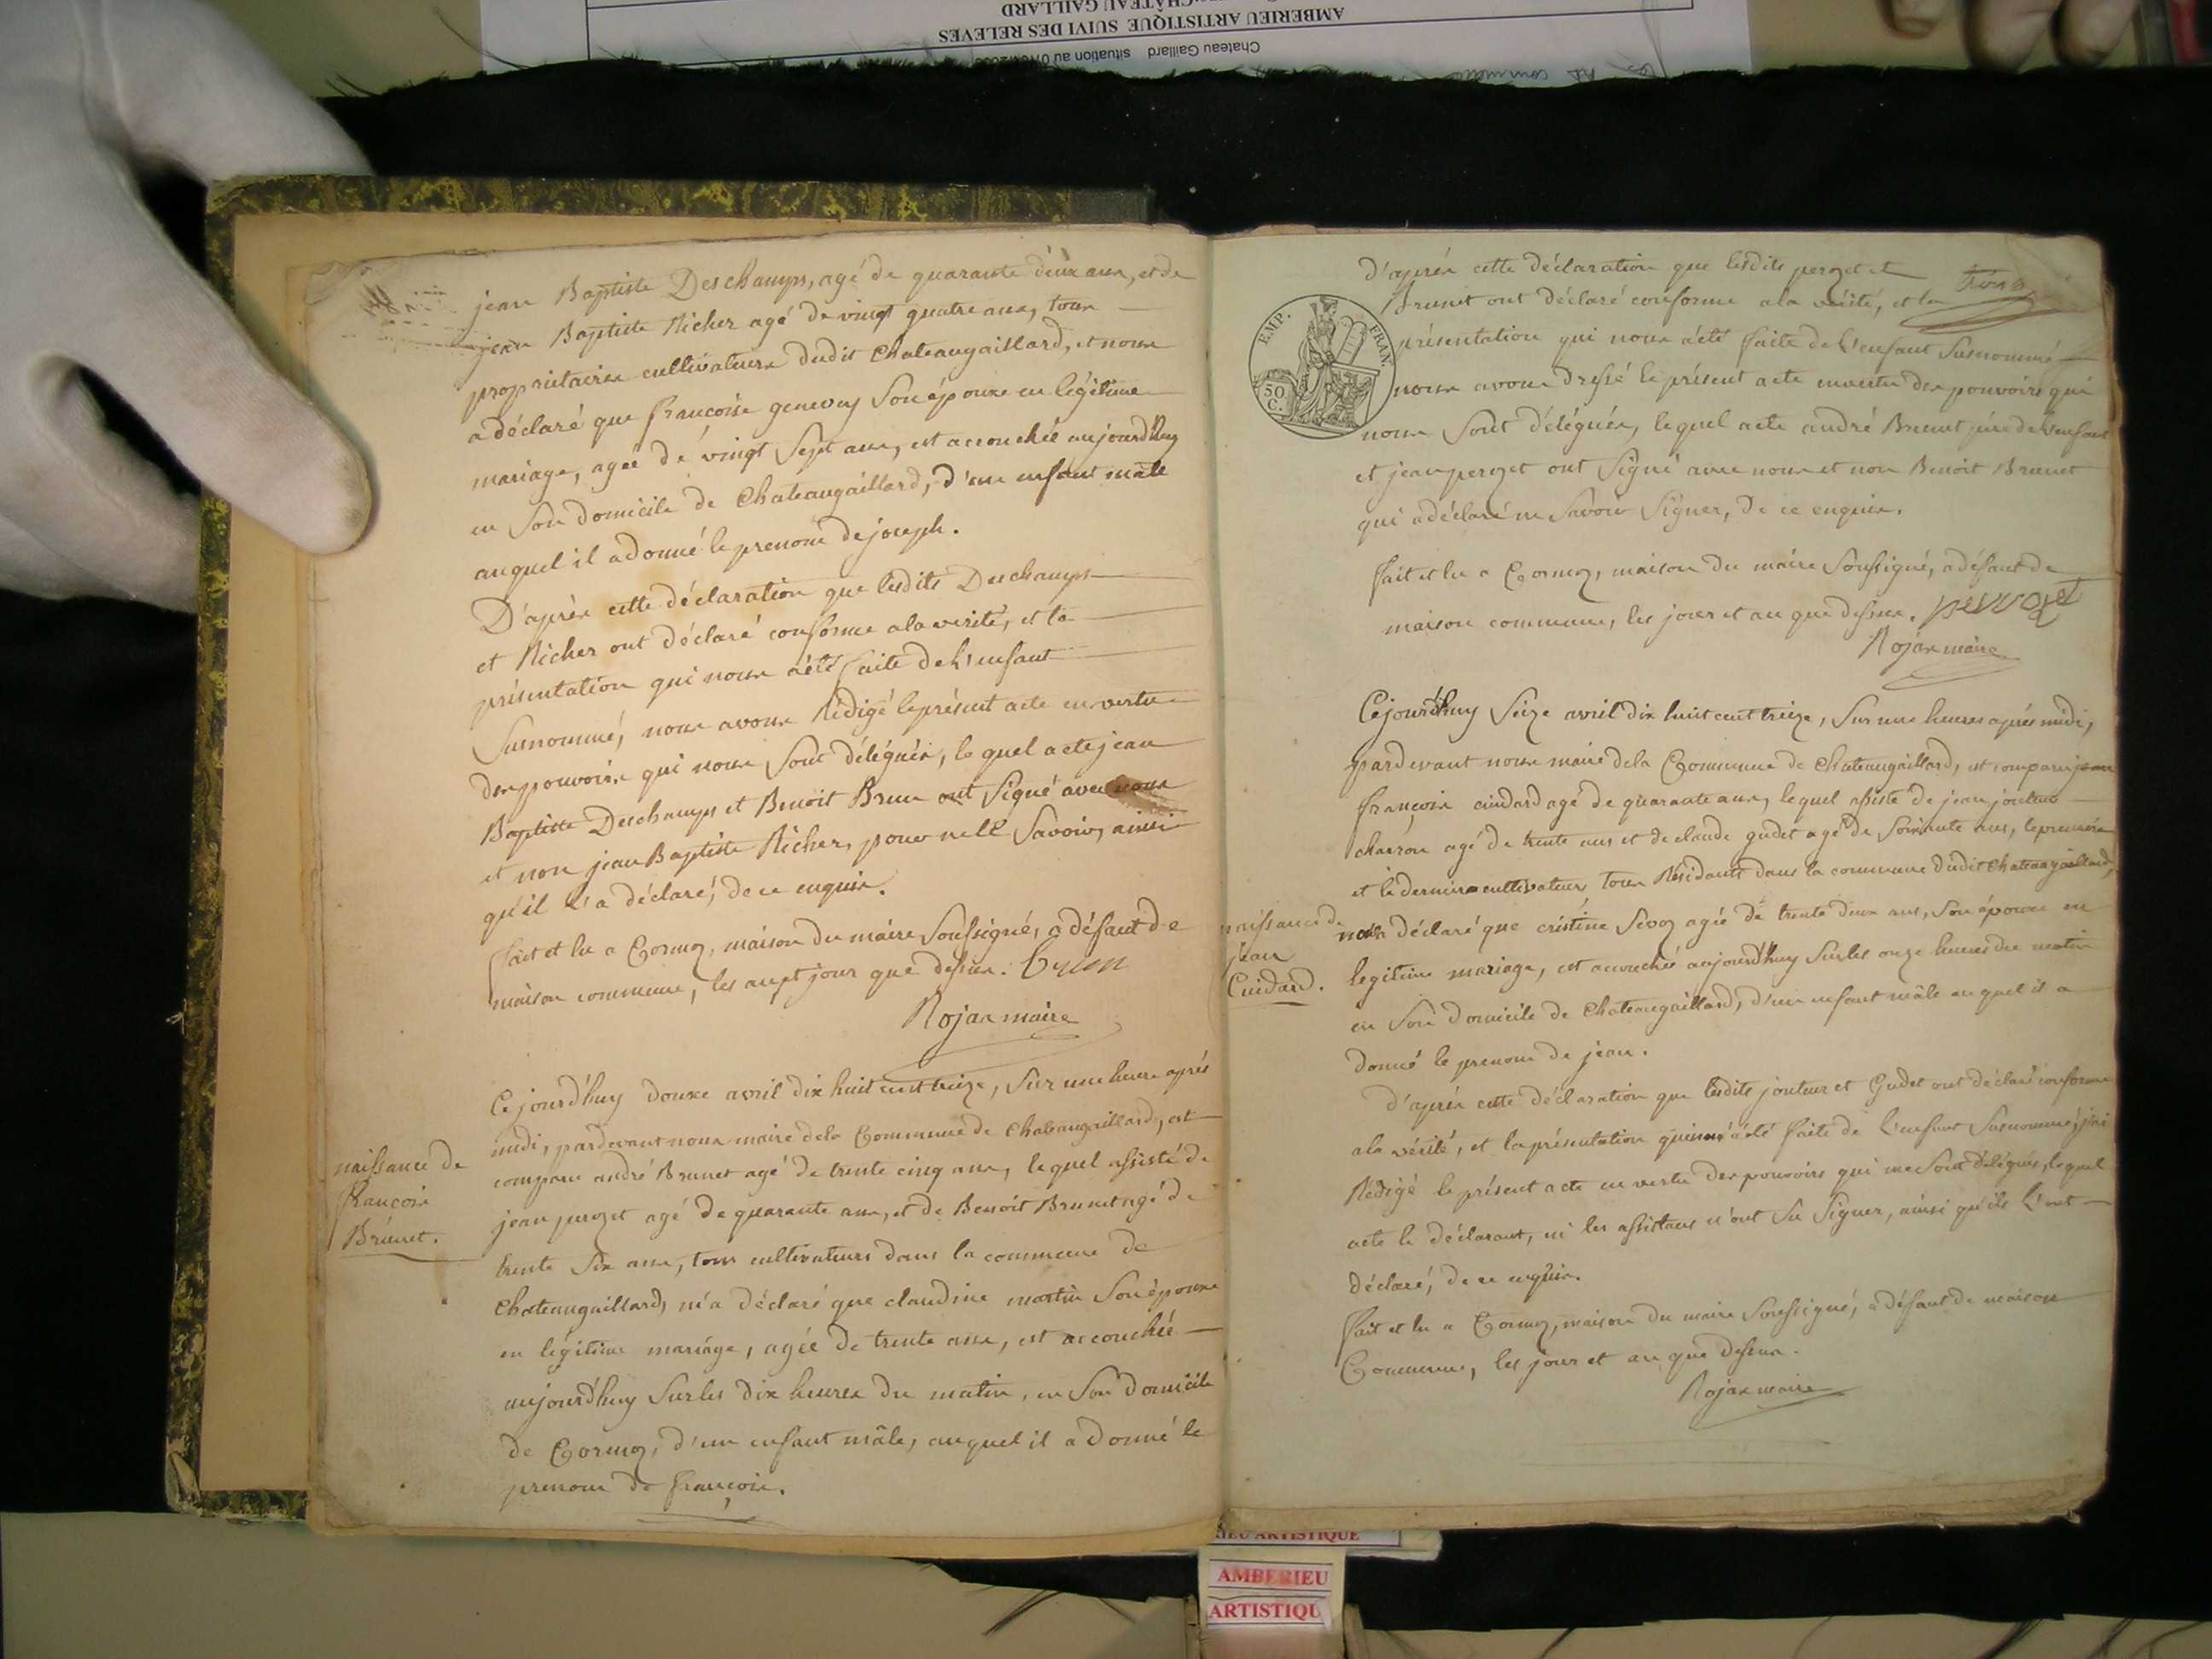 CHÂTEAU GAILLARD
AMBERIEU ARTISTIQUE SUIVI DES RELEVES
Chateau Gaillard situation au
jean Baptiste Deschamps, agé de quarante deux ans, et de
jean Baptiste Richer agé de vingt quatre ans, tous
propriétaires cultivateurs dudit Chateaugaillard, et nous
a déclaré que francoise genevay Son épouse en légitime
mariage, agée de vingt Sept ans, est accouchée aujourd'huy
en Son domicile de Chateaugaillard, d'un enfant mâle
auquel il a donné le prenom de joseph.
D'après cette déclaration que lesdits Deschamps
et Richer ont déclaré conforme a la verité, et la
présentation qui nous a été faite de l'enfant
Susnommé, nous avons Rédigé le présent acte en vertu
des pouvoirs qui nous Sont délégués, le quel acte jean
Baptiste Deschamps et Benoit Brun ont Signé avec nous
et non jean Baptiste Richer, pour ne le Savoir, ainsi
qu'il l'a déclaré, de ce enquis.
fait et lu a Cormoz, maison du maire Soussigné, a défaut de
maison commune, les an et jour que dessus.
Rojas maire
naissance de
françois
Brunet.
Cejourd'huy douze avril dix huit cent treize, Sur une heure après
midi, pardevant nous maire de la Commune de Chateaugaillard, est
comparu andré Brunet agé de trente cinq ans, lequel assisté de
jean perozet agé de quarante ans, et de Benoit Brunet agé de
trente Six ans, tous cultivateurs dans la commune de
Chateaugaillard, m'a déclaré que claudine martin Son épouse
en légitime mariage, agée de trente ans, est accouchée
aujourd'huy Sur les dix heures du matin, en Son domicile
de Cormoz, d'un enfant mâle, auquel il a donné le
prenom de françois.
trois
EMP. FRAN.
50 C.
d'après cette déclaration que lesdits perozet et
Brunet ont déclaré conforme a la vérité, et la
présentation qui nous a été faite de l'enfant Susnommé
nous avons dressé le présent acte en vertu des pouvoirs qui
nous Sont délégués, lequel acte andré Brunet père de l'enfant
et jean perozet ont Signé avec nous et non Benoit Brunet
qui a déclaré ne Savoir Signer, de ce enquis.
fait et lu a Cormoz, maison du maire Soussigné, a défaut de
maison commune, les jour et an que dessus. perrozet
Rojas maire
naissance de
jean
Cuidard.
Cejourd'huy Seize avril dix huit cent treize, Sur une heures après midi,
pardevant nous maire de la Commune de Chateaugaillard, est comparu jean
françois cuidard agé de quarante ans, lequel assisté de jean jouteur
charron agé de trente ans et de claude gudet agé de Soixante ans, le premier
et le dernier cultivateurs, tous Résidants dans la commune dudit Chateaugaillard,
nous a déclaré que cristine Sevoz agée de trente deux ans, Son épouse en
legitime mariage, est accouchée aujourd'huy Sur les onze heures du matin
en Son domicile de Chateaugaillard, d'un enfant mâle auquel il a
donné le prenom de jean.
d'après cette déclaration que lesdits jouteur et Gudet ont déclaré conforme
a la vérité, et la présentation qui m'a été faite de l'enfant Susnommé, j'ai
Rédigé le présent acte en vertu des pouvoirs qui me Sont délégués, lequel
acte le déclarant, ni les assistans n'ont Su Signer, ainsi qu'ils l'ont
déclaré, de ce enquis.
fait et lu a Cormoz, maison du maire Soussigné, a défaut de maison
Commune, les jour et an que dessus.
Rojas maire
ARTISTIQUE
AMBERIEU
ARTISTIQU